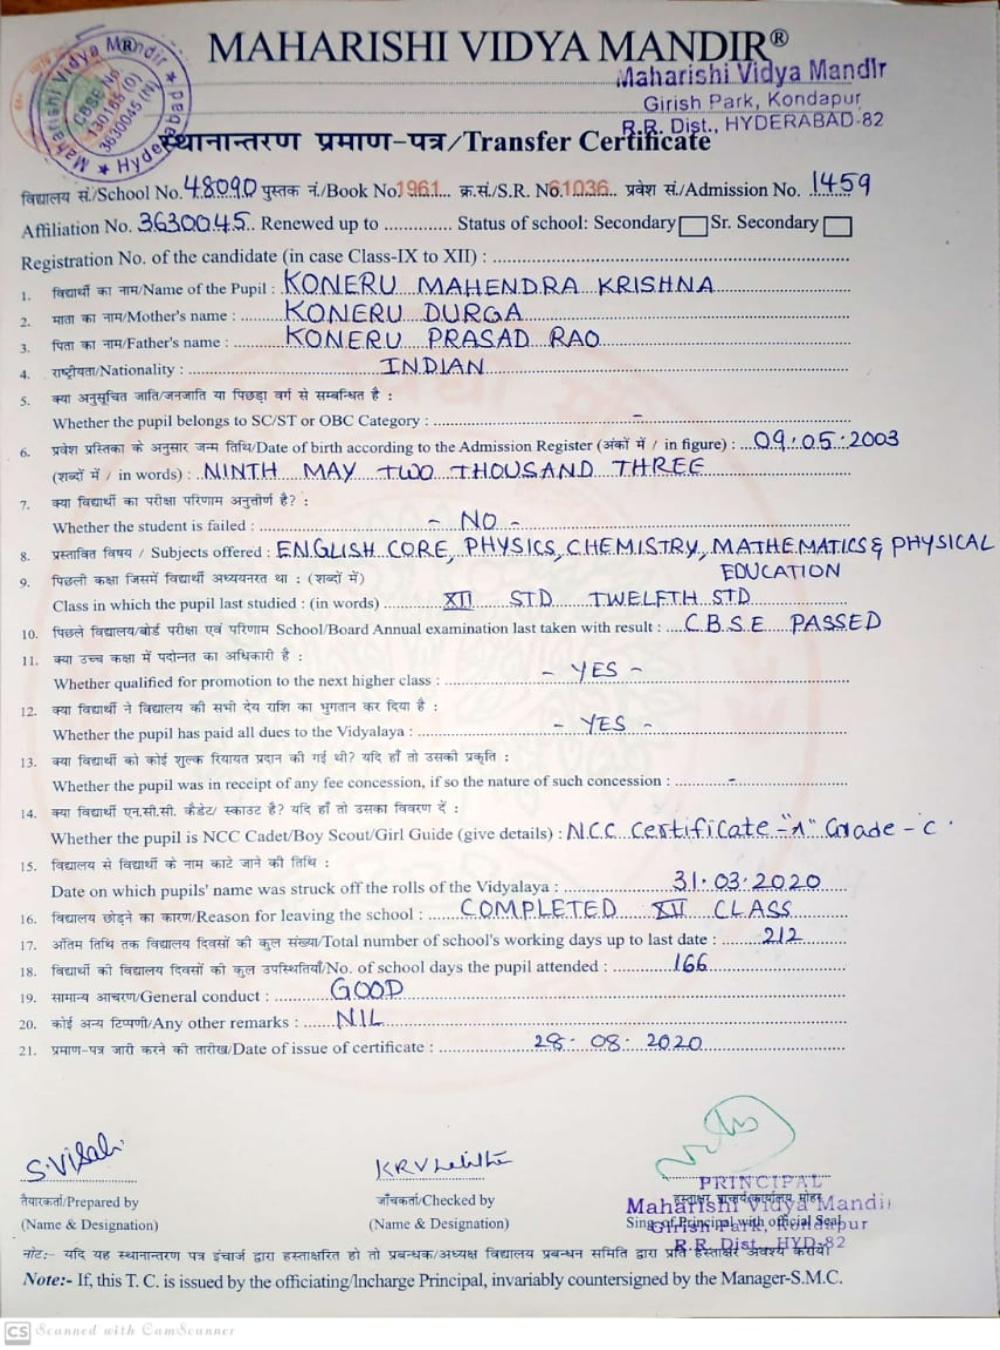 MAHARISHI VIDYA MANDIR®
Maharishi Vidya Mandir
Girish Park, Kondapur
R.R. Dist., HYDERABAD-82
Maharishi Vidya Mandir ★ Hyderabad ★
CBSE No
130165 (O)
3630045 (N)
स्थानान्तरण प्रमाण-पत्र/Transfer Certificate
विद्यालय सं./School No. 48090 पुस्तक नं./Book No 1961 क्र.सं./S.R. No. 61036 प्रवेश सं./Admission No. 1459
Affiliation No. 3630045 Renewed up to ............. Status of school: Secondary Sr. Secondary
Registration No. of the candidate (in case Class-IX to XII) :
1. विद्यार्थी का नाम/Name of the Pupil : KONERU MAHENDRA KRISHNA
2. माता का नाम/Mother's name : KONERU DURGA
3. पिता का नाम/Father's name : KONERU PRASAD RAO
4. राष्ट्रीयता/Nationality : INDIAN
5. क्या अनुसूचित जाति/जनजाति या पिछड़ा वर्ग से सम्बन्धित है :
Whether the pupil belongs to SC/ST or OBC Category : -
6. प्रवेश प्रस्तिका के अनुसार जन्म तिथि/Date of birth according to the Admission Register (अंकों में / in figure) : 09.05.2003
(शब्दों में / in words) : NINTH MAY TWO THOUSAND THREE
7. क्या विद्यार्थी का परीक्षा परिणाम अनुत्तीर्ण है? :
Whether the student is failed : - NO -
8. प्रस्तावित विषय / Subjects offered : ENGLISH CORE, PHYSICS, CHEMISTRY, MATHEMATICS & PHYSICAL
EDUCATION
9. पिछली कक्षा जिसमें विद्यार्थी अध्ययनरत था : (शब्दों में)
Class in which the pupil last studied : (in words) XII STD TWELFTH STD
10. पिछले विद्यालय/बोर्ड परीक्षा एवं परिणाम School/Board Annual examination last taken with result : C.B.S.E PASSED
11. क्या उच्च कक्षा में पदोन्नत का अधिकारी है :
Whether qualified for promotion to the next higher class : - YES -
12. क्या विद्यार्थी ने विद्यालय की सभी देय राशि का भुगतान कर दिया है :
Whether the pupil has paid all dues to the Vidyalaya : - YES -
13. क्या विद्यार्थी को कोई शुल्क रियायत प्रदान की गई थी? यदि हाँ तो उसकी प्रकृति :
Whether the pupil was in receipt of any fee concession, if so the nature of such concession : -
14. क्या विद्यार्थी एन.सी.सी. कैडेट/ स्काउट है? यदि हाँ तो उसका विवरण दें :
Whether the pupil is NCC Cadet/Boy Scout/Girl Guide (give details) : NCC Certificate - "A" Grade - C
15. विद्यालय से विद्यार्थी के नाम काटे जाने की तिथि :
Date on which pupils' name was struck off the rolls of the Vidyalaya : 31.03.2020
16. विद्यालय छोड़ने का कारण/Reason for leaving the school : COMPLETED XII CLASS
17. अंतिम तिथि तक विद्यालय दिवसों की कुल संख्या/Total number of school's working days up to last date : 212
18. विद्यार्थी की विद्यालय दिवसों की कुल उपस्थितियाँ/No. of school days the pupil attended : 166
19. सामान्य आचरण/General conduct : GOOD
20. कोई अन्य टिप्पणी/Any other remarks : NIL
21. प्रमाण-पत्र जारी करने की तारीख/Date of issue of certificate : 28.08.2020
S.Visali
तैयारकर्ता/Prepared by
(Name & Designation)
जाँचकर्ता/Checked by
(Name & Designation)
PRINCIPAL
Maharishi Vidya Mandir
Girish Park, Kondapur
R.R. Dist., HYD-82
Sing. of Principal with official Seal
नोट:- यदि यह स्थानान्तरण पत्र इंचार्ज द्वारा हस्ताक्षरित हो तो प्रबन्धक/अध्यक्ष विद्यालय प्रबन्धन समिति द्वारा प्रति हस्ताक्षर अवश्य करायें।
Note:- If, this T. C. is issued by the officiating/Incharge Principal, invariably countersigned by the Manager-S.M.C.
CS Scanned with CamScanner